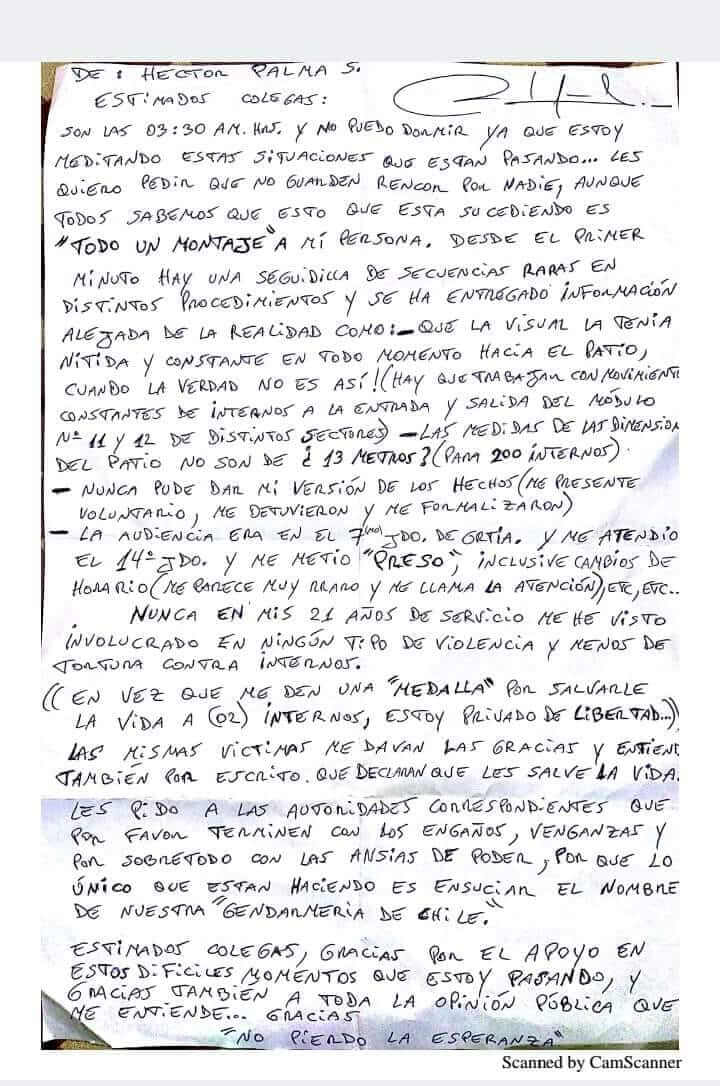 DE: HECTOR PALMA S.
ESTIMADOS COLEGAS:
SON LAS 03:30 AM. HRS. Y NO PUEDO DORMIR YA QUE ESTOY
MEDITANDO ESTAS SITUACIONES QUE ESTAN PASANDO... LES
QUIERO PEDIR QUE NO GUARDEN RENCOR POR NADIE, AUNQUE
TODOS SABEMOS QUE ESTO QUE ESTA SUCEDIENDO ES
"TODO UN MONTAJE" A MÍ PERSONA. DESDE EL PRIMER
MINUTO HAY UNA SEGUIDILLA DE SECUENCIAS RARAS EN
DISTINTOS PROCEDIMIENTOS Y SE HA ENTREGADO INFORMACIÓN
ALEJADA DE LA REALIDAD COMO:- QUE LA VISUAL LA TENIA
NÍTIDA Y CONSTANTE EN TODO MOMENTO HACIA EL PATIO,
CUANDO LA VERDAD NO ES ASÍ! (HAY QUE TRABAJAR CON MOVIMIENT
CONSTANTES DE INTERNOS A LA ENTRADA Y SALIDA DEL MÓDULO
Nº 11 Y 12 DE DISTINTOS SECTORES) - LAS MEDIDAS DE LAS DIMENSION
DEL PATIO NO SON DE ¿ 13 METROS? (PARA 200 INTERNOS).
- NUNCA PUDE DAR MÍ VERSIÓN DE LOS HECHOS (ME PRESENTE
VOLUNTARIO, ME DETUVIERON Y ME FORMALIZARON)
- LA AUDIENCIA ERA EN EL 7mo JDO. DE GRTÍA. Y ME ATENDIO
EL 14º JDO. Y ME METIO "PRESO", INCLUSIVE CAMBIOS DE
HORARIO (ME PARECE MUY RRARO Y ME LLAMA LA ATENCIÓN), ETC, ETC..
NUNCA EN MIS 21 AÑOS DE SERVICIO ME HE VISTO
INVOLUCRADO EN NINGÚN TIPO DE VIOLENCIA Y MENOS DE
TORTURA CONTRA INTERNOS.
(( EN VEZ QUE ME DEN UNA "MEDALLA" POR SALVARLE
LA VIDA A (02) INTERNOS, ESTOY PRIVADO DE LIBERTAD...))
LAS MISMAS VICTIMAS ME DAVAN LAS GRACIAS Y ENTIEND
TAMBIÉN POR ESCRITO. QUE DECLARAN QUE LES SALVE LA VIDA.
LES PIDO A LAS AUTORIDADES CORRESPONDIENTES QUE
POR FAVOR TERMINEN CON LOS ENGAÑOS, VENGANZAS Y
POR SOBRETODO CON LAS ANSIAS DE PODER, POR QUE LO
ÚNICO QUE ESTAN HACIENDO ES ENSUCIAR EL NOMBRE
DE NUESTRA "GENDARMERIA DE CHILE."
ESTIMADOS COLEGAS, GRACIAS POR EL APOYO EN
ESTOS DIFICILES MOMENTOS QUE ESTOY PASANDO, Y
GRACIAS TAMBIÉN A TODA LA OPINIÓN PÚBLICA QUE
ME ENTIENDE... GRACIAS
"NO PIERDO LA ESPERANZA"
Scanned by CamScanner